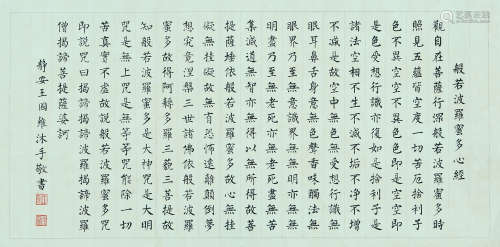 般若波羅蜜多心經
觀自在菩薩行深般若波羅蜜多時
照見五蘊皆空度一切苦厄捨利子
色不異空空不異色色即是空空即
是色受想行識亦復如是捨利子是
諸法空相不生不滅不垢不淨不增
不減是故空中無色無受想行識無
眼耳鼻舌身意無色聲香味觸法無
眼界乃至無意識界無無明亦無無
明盡乃至無老死亦無老死盡無苦
集滅道無智亦無得以無所得故菩
提薩埵依般若波羅蜜多故心無挂
礙無挂礙故無有恐怖遠離顛倒夢
想究竟涅槃三世諸佛依般若波羅
蜜多故得阿耨多羅三藐三菩提故
知般若波羅蜜多是大神咒是大明
咒是無上咒是無等等咒能除一切
苦真實不虛故說般若波羅蜜多咒
即說咒曰揭諦揭諦波羅揭諦波羅
僧揭諦菩提薩婆訶
靜安王國維沐手敬書